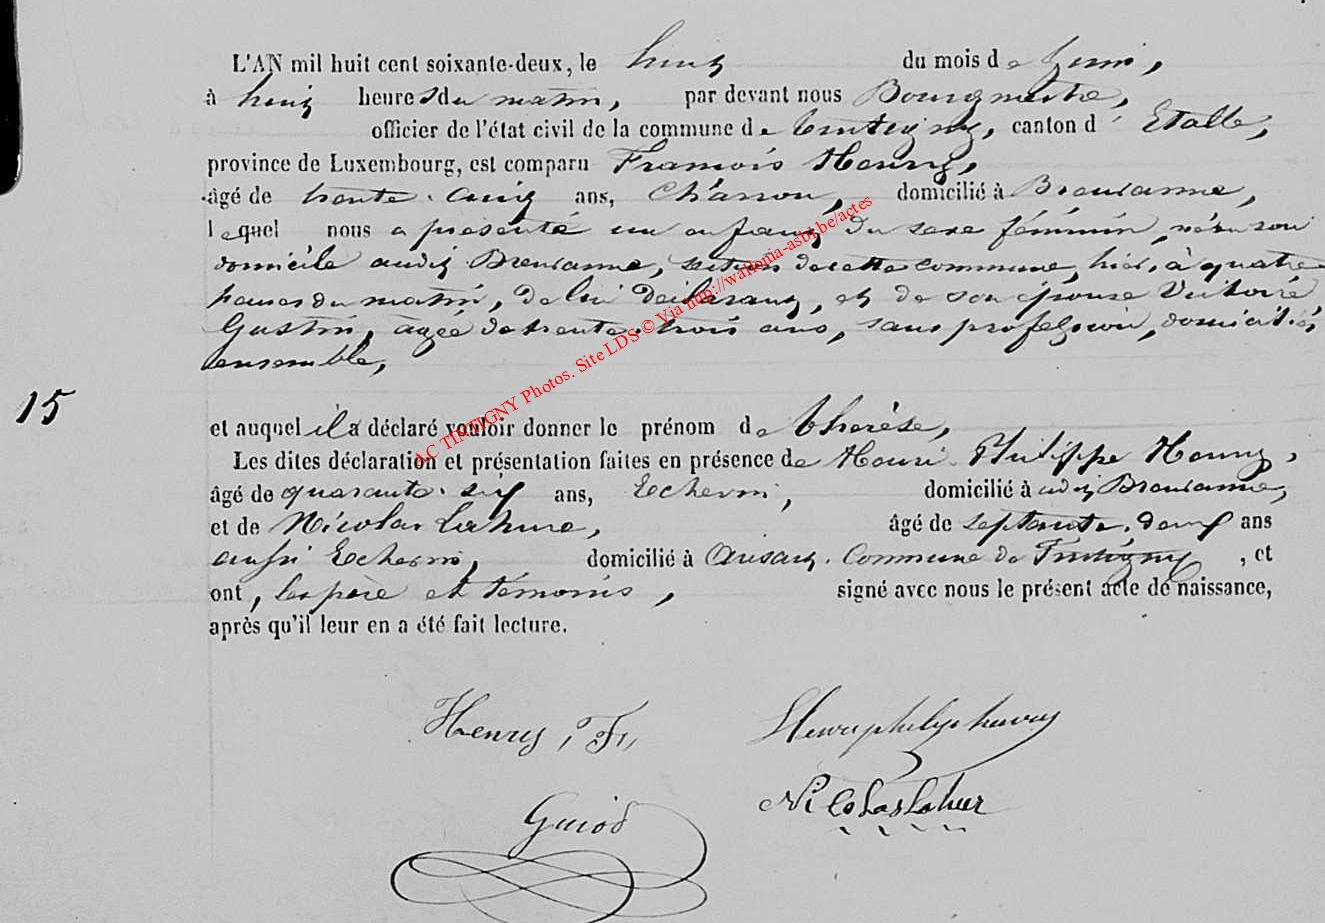 L'AN mil huit cent soixante-deux, le huit du mois de Juin,
à huit heures du matin, par devant nous Bourgmestre,
officier de l'état civil de la commune de Tintigny, canton d'Etalle,
province de Luxembourg, est comparu François Henry,
âgé de trente-cinq ans, Charron, domicilié à Breuvanne,
lequel nous a présenté un enfant du sexe féminin, né en son
domicile audit Breuvanne, section de cette commune, hier, à quatre
heures du matin, de lui déclarant, et de son épouse Victoire
Gustin, agée de trente-trois ans, sans profession, domiciliés
ensemble,
15
et auquel il a déclaré vouloir donner le prénom de Thérèse,
Les dites déclaration et présentation faites en présence de Henri-Philippe Henry,
âgé de quarante-six ans, Echevin, domicilié à audit Breuvanne,
et de Nicolas Lahure, âgé de septante-deux ans
aussi Echevin, domicilié à Ansart, Commune de Tintigny, et
ont, les père et témoins, signé avec nous le présent acte de naissance,
après qu'il leur en a été fait lecture.
Henry, Fr,
Nicolas Lahur
Guiot
AC TINTIGNY Photos. Site LDS © Via http://wallonia-asbl.be/actes